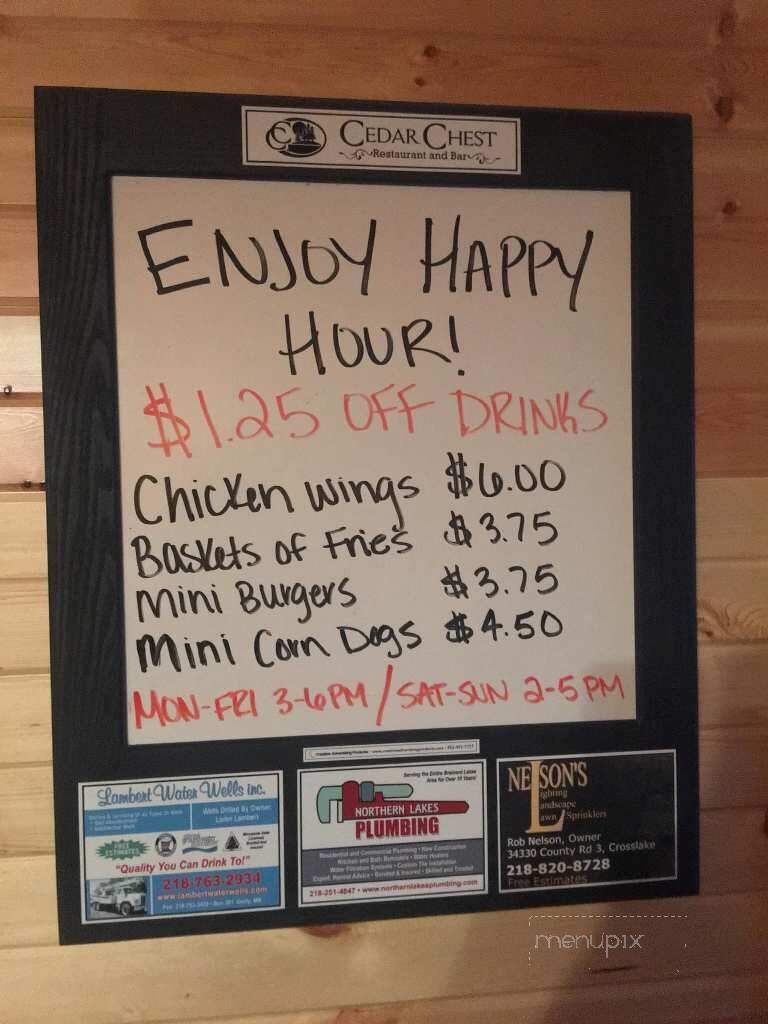 CEDAR CHEST
Restaurant and Bar
ENJOY HAPPY
HOUR!
$1.25 OFF DRINKS
Chicken Wings $6.00
Baskets of Fries $3.75
Mini Burgers $3.75
Mini Corn Dogs $4.50
MON-FRI 3-6PM / SAT-SUN 2-5PM
Lambert Water Wells inc.
Wells Drilled By Owner,
FREE
ESTIMATES
"Quality You Can Drink To!"
218-763-2934
www.lambertwaterwells.com
Serving the Entire Brainerd Lakes
Area for Over 10 Years!
NORTHERN LAKES
PLUMBING
Residential and Commercial Plumbing • New Construction
Kitchen and Bath Remodels • Water Heaters
218-251-4847 • www.northernlakesplumbing.com
NELSON'S
Lighting
Landscape
Lawn Sprinklers
Rob Nelson, Owner
34330 County Rd 3, Crosslake
218-820-8728
Free Estimates
menupix